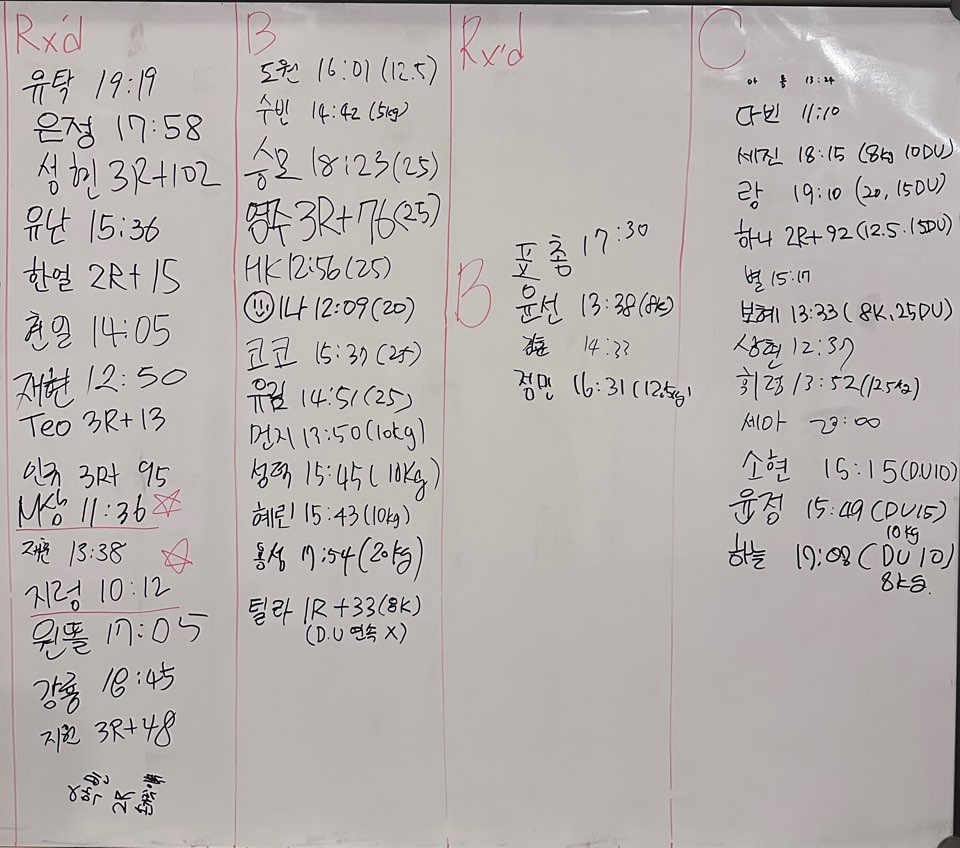 Rx'd
유탁 19:19
은정 17:58
성현 3R+102
유난 15:36
한얼 2R+15
현일 14:05
재현 12:50
Teo 3R+13
인국 3R+ 95
M상 11:36
13:38
지령 10:12
원똘 17:05
강룡 18:45
지원 3R+48
2R
B
도원 16:01 (12.5)
수빈 14:42 (5kg)
승모 18:23 (25)
영수 3R+76 (25)
HK 12:56 (25)
나 12:09 (20)
코코 15:37 (25)
유림 14:51 (25)
먼지 13:50 (10kg)
성력 15:45 (10kg)
혜린 15:43 (10kg)
용성 17:54 (20kg)
틸라 1R+33 (8K)
(D.U 연속 X)
Rx'd
포총 17:30
B
윤선 13:38 (8K)
14:33
정민 16:31 (12.5kg)
C
13:24
다빈 11:10
세진 18:15 (8kg 10DU)
랑 19:10 (20, 15DU)
하나 2R+92 (12.5. 15DU)
별 15:17
보혜 13:33 (8K, 25DU)
상현 12:37
휘령 13:52 (12.5kg)
세아 23:00
소현 15:15 (DU10)
윤정 15:49 (DU15)
10kg
하늘 17:08 (DU 10)
8kg.